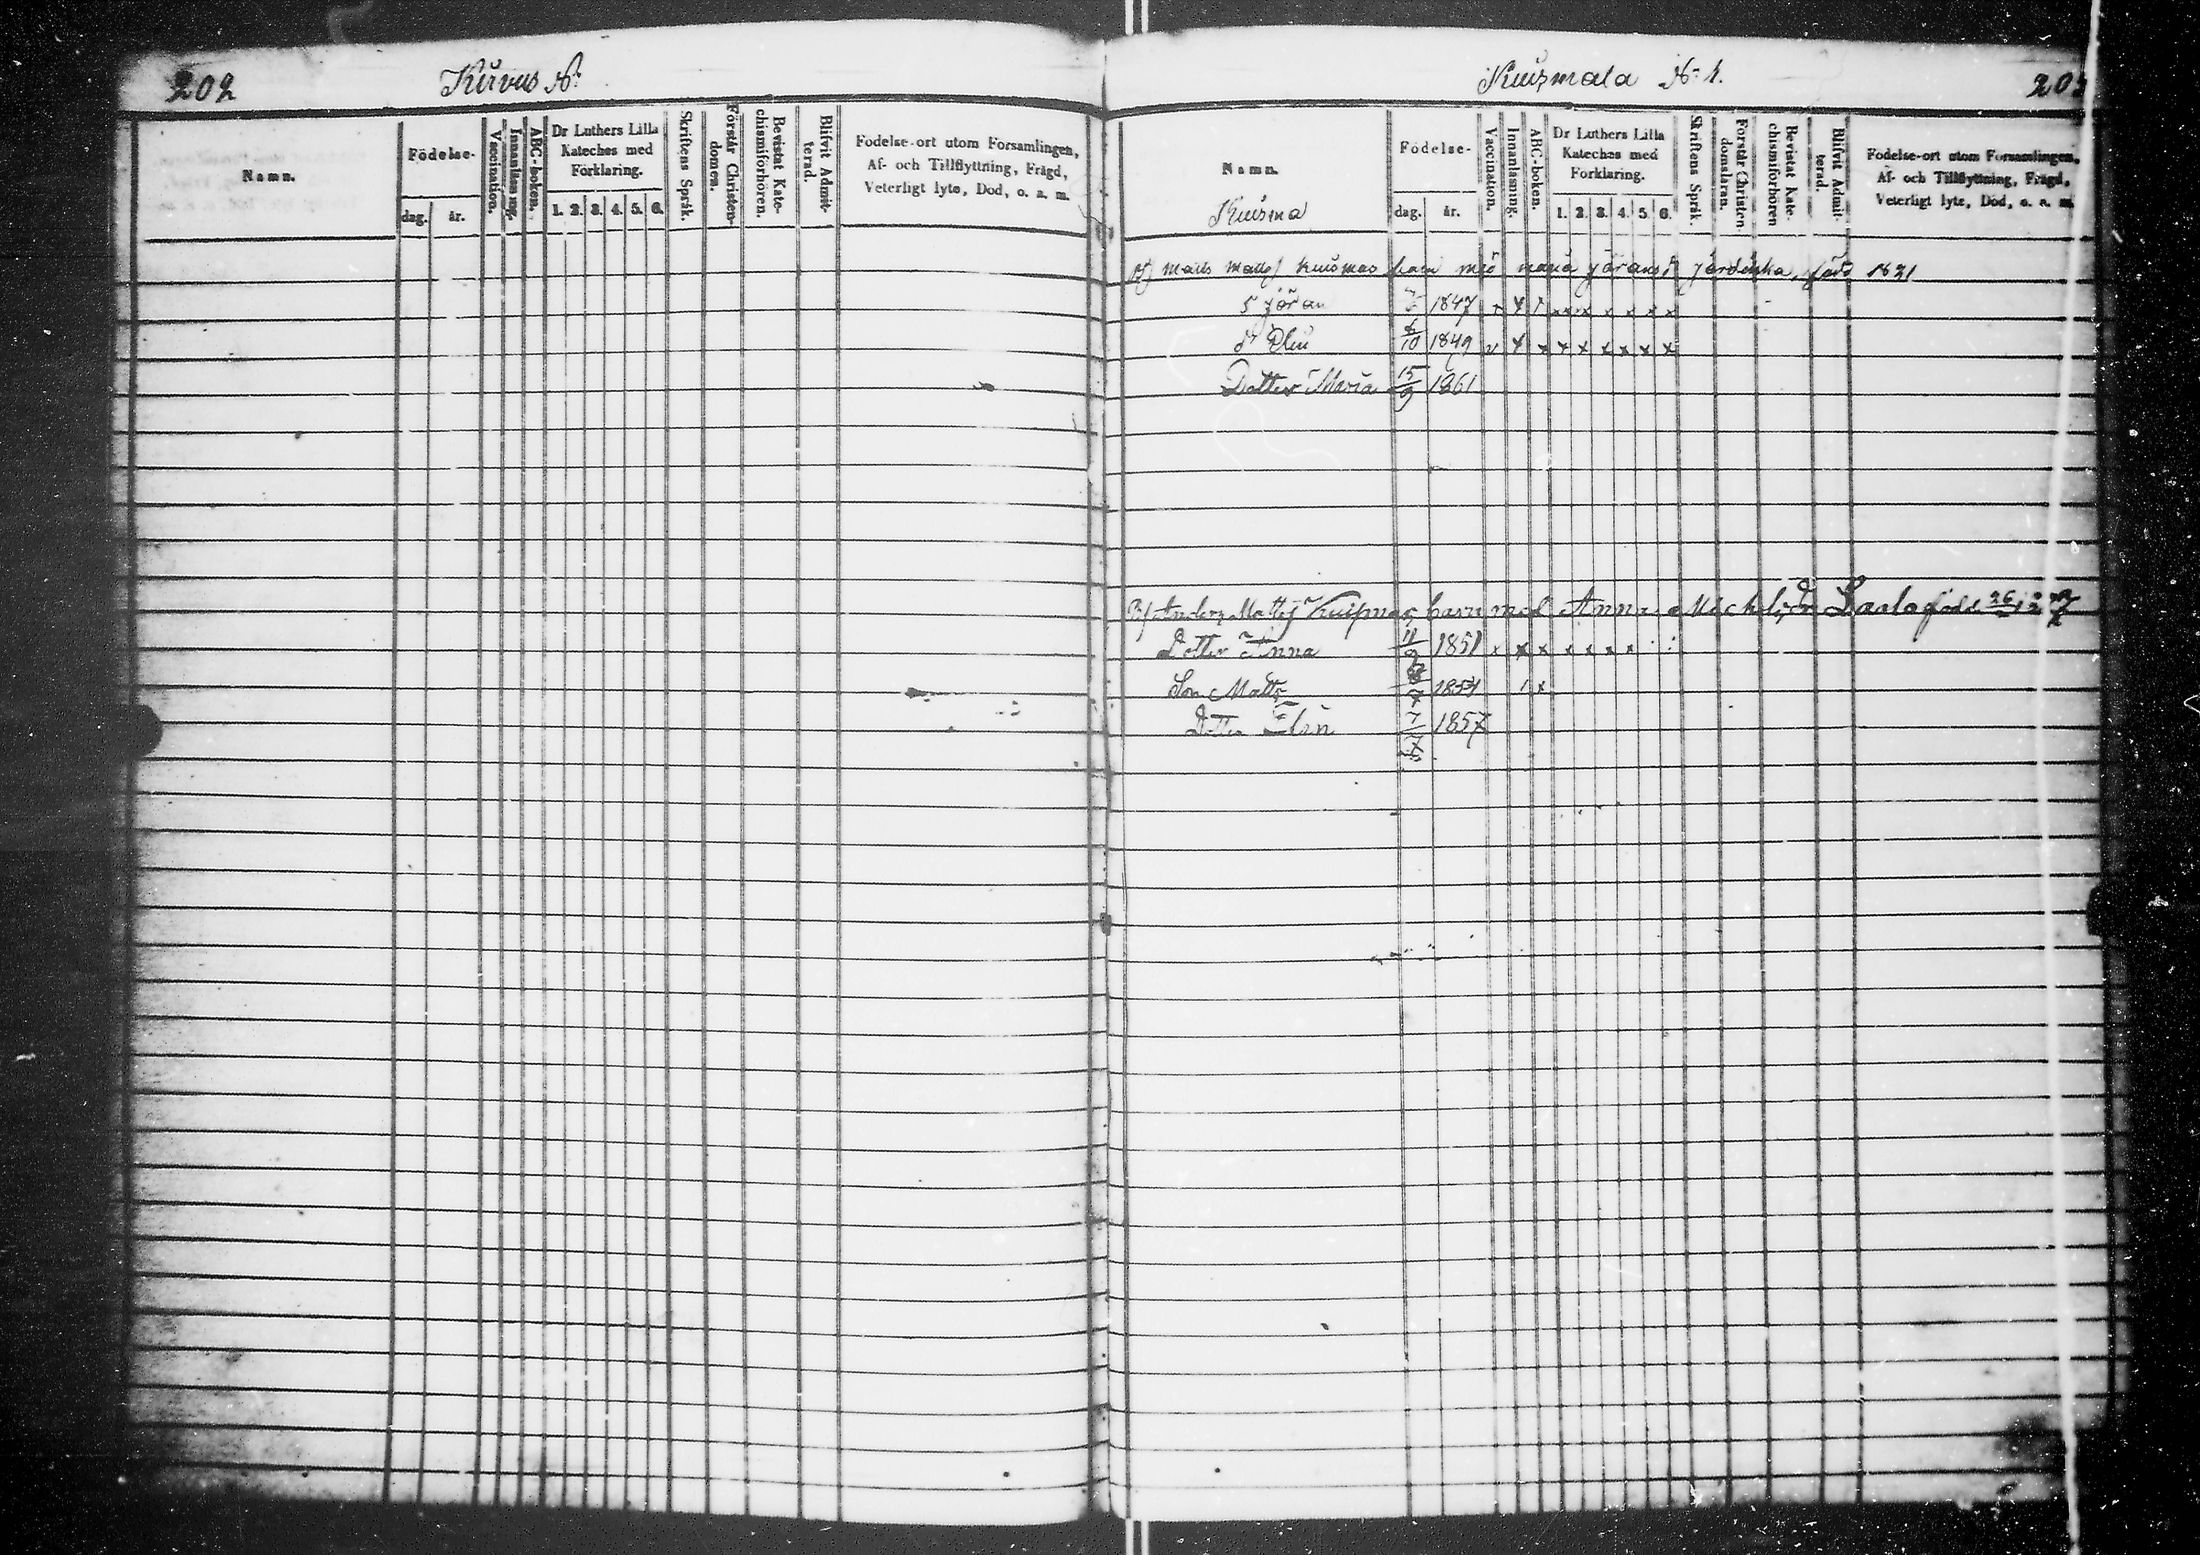 202
Kurvus №
Namn.
Födelse-
dag.
år.
Vaccination.
Innanläsning.
ABC-boken.
Dr Luthers Lilla
Kateches med
Förklaring.
1. 2. 3. 4. 5. 6.
Skriftens Språk.
Förstår Christen-
domen.
Bevistat Kate-
chismiförhören.
Blifvit Admit-
terad.
Födelse-ort utom Församlingen,
Af- och Tillflyttning, Frägd,
Veterligt lyte, Död, o. a. m.
Kuismala № 1.
203
Namn.
Kuisma
Födelse-
dag.
år.
Vaccination.
Innanläsning.
ABC-boken.
Dr Luthers Lilla
Kateches med
Förklaring.
1. 2. 3. 4. 5. 6.
Skriftens Språk.
Förstår Christen-
domsläran.
Bevistat Kate-
chismiförhören
Blifvit Admit-
terad.
Födelse-ort utom Församlingen,
Af- och Tillflyttning, Frägd,
Veterligt lyte, Död, o. a. m.
Matts Matts Kuismas barn med Maria Jöransdr född 1821
s Jöran 1847 x x x x x x x x x
dr Elin 6/10 1849 x x x x x x x x x
Dotter Maria 15/9 1861
Bf Anders Mattsj Kuismas barn med Anna Michelsdr Laala född 26/12
Dotter Anna 11/9 1851 x x x x x x x
Son Matts 1854 x
Dotter Elin 1857